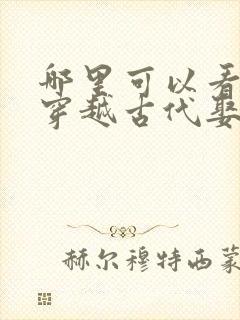 哪里可以看
穿越古代娶
赫尔穆特西蒙